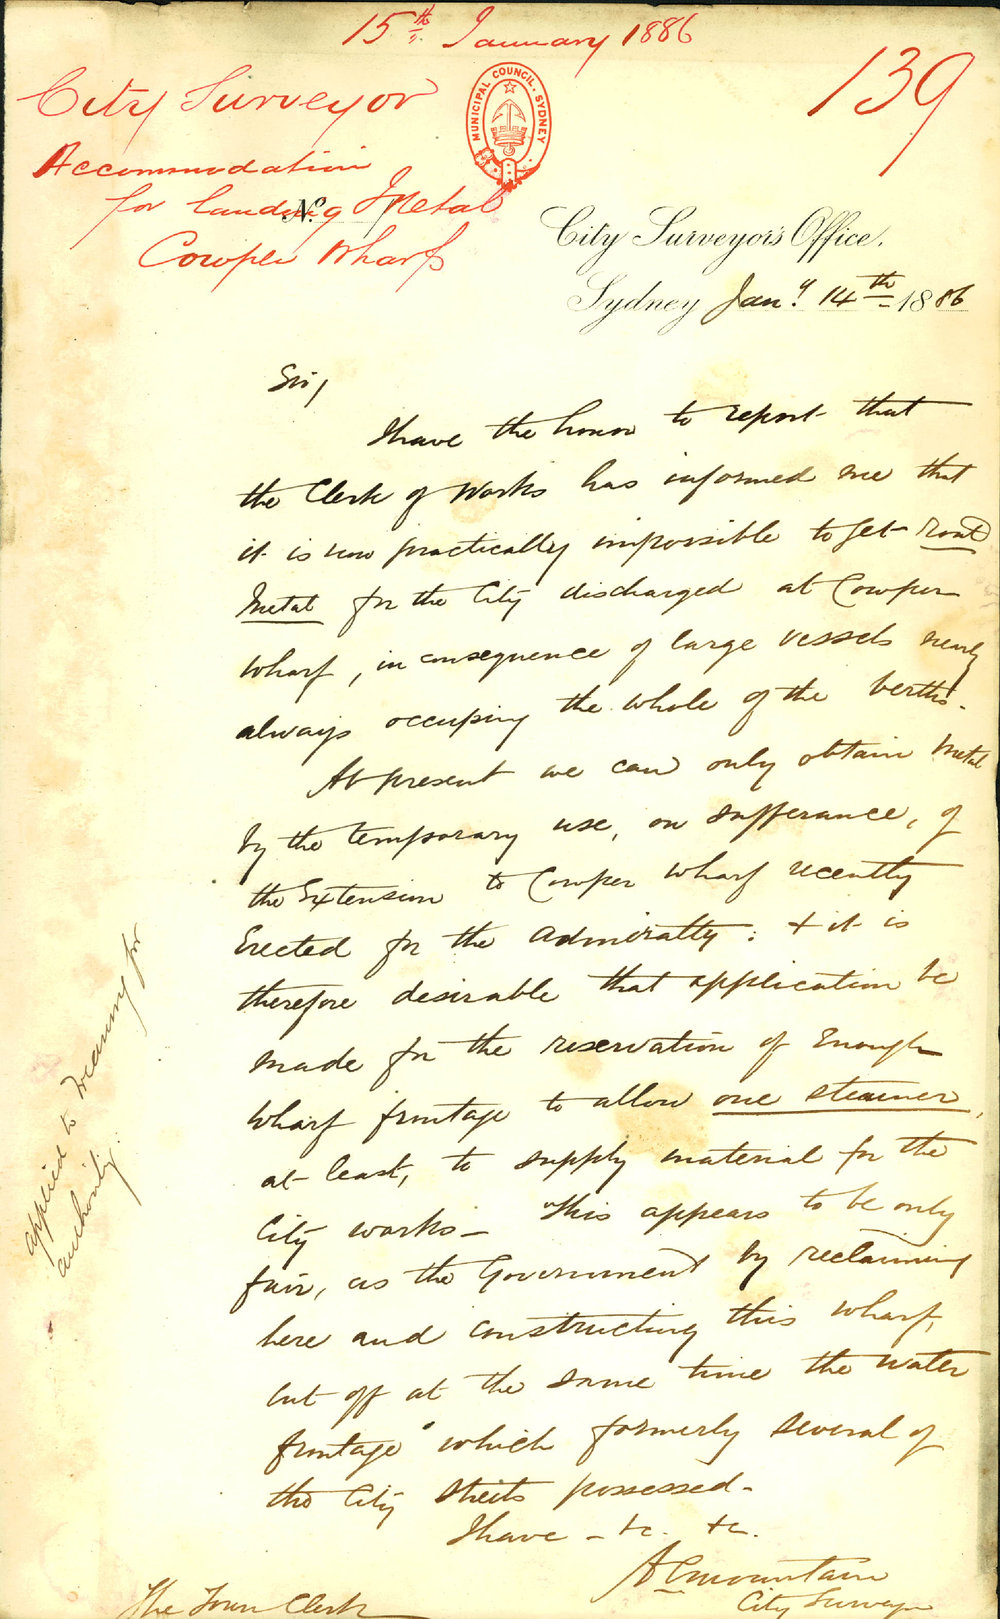 15th January 1886
139
City Surveyor
Accommodation
for landing Metal
Cowper Wharf
MUNICIPAL COUNCIL. SYDNEY
No.
City Surveyor's Office.
Sydney Jany. 14th 1886
Sir,
I have the honor to report that
the Clerk of Works has informed me that
it is now practically impossible to get Road
Metal for the City discharged at Cowper
Wharf, in consequence of large vessels nearly
always occupying the whole of the berths.
At present we can only obtain metal
by the temporary use, on sufferance, of
the Extension to Cowper Wharf recently
Erected for the Admiralty: & it is
therefore desirable that application be
made for the reservation of Enough
Wharf frontage to allow one steamer,
at least, to supply material for the
City works – This appears to be only
fair, as the Government by reclaiming
here and constructing this wharf,
cut off at the same time the water
frontage which formerly several of
the City Streets possessed –
I have – &c. &c.
A C Mountain
City Surveyor
The Town Clerk
applied to Treasury for
authority.